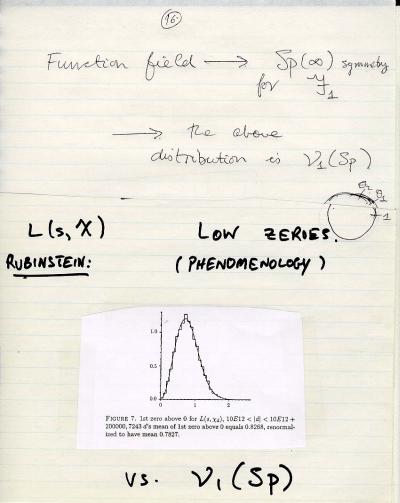 16
Function field → Sp(∞) symmetry
for 𝓕₁
→ the above
distribution is ν₁(Sp)
θ₂ θ₁
1
L(s, χ)
LOW ZERIES.
RUBINSTEIN:
(PHENOMENOLOGY)
1.0
0.5
0
0 1 2
FIGURE 7. 1st zero above 0 for L(s, χd), 10E12 < |d| < 10E12 +
200000, 7243 d's mean of 1st zero above 0 equals 0.8268, renormal-
ized to have mean 0.7827.
vs. ν₁(Sp)